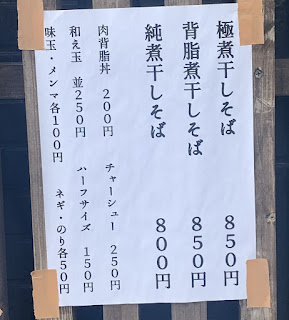 極煮干しそば 850円
背脂煮干しそば 850円
純煮干しそば 800円
肉背脂丼 200円 チャーシュー 250円
和え玉 並250円 ハーフサイズ 150円
味玉・メンマ各100円 ネギ・のり各50円